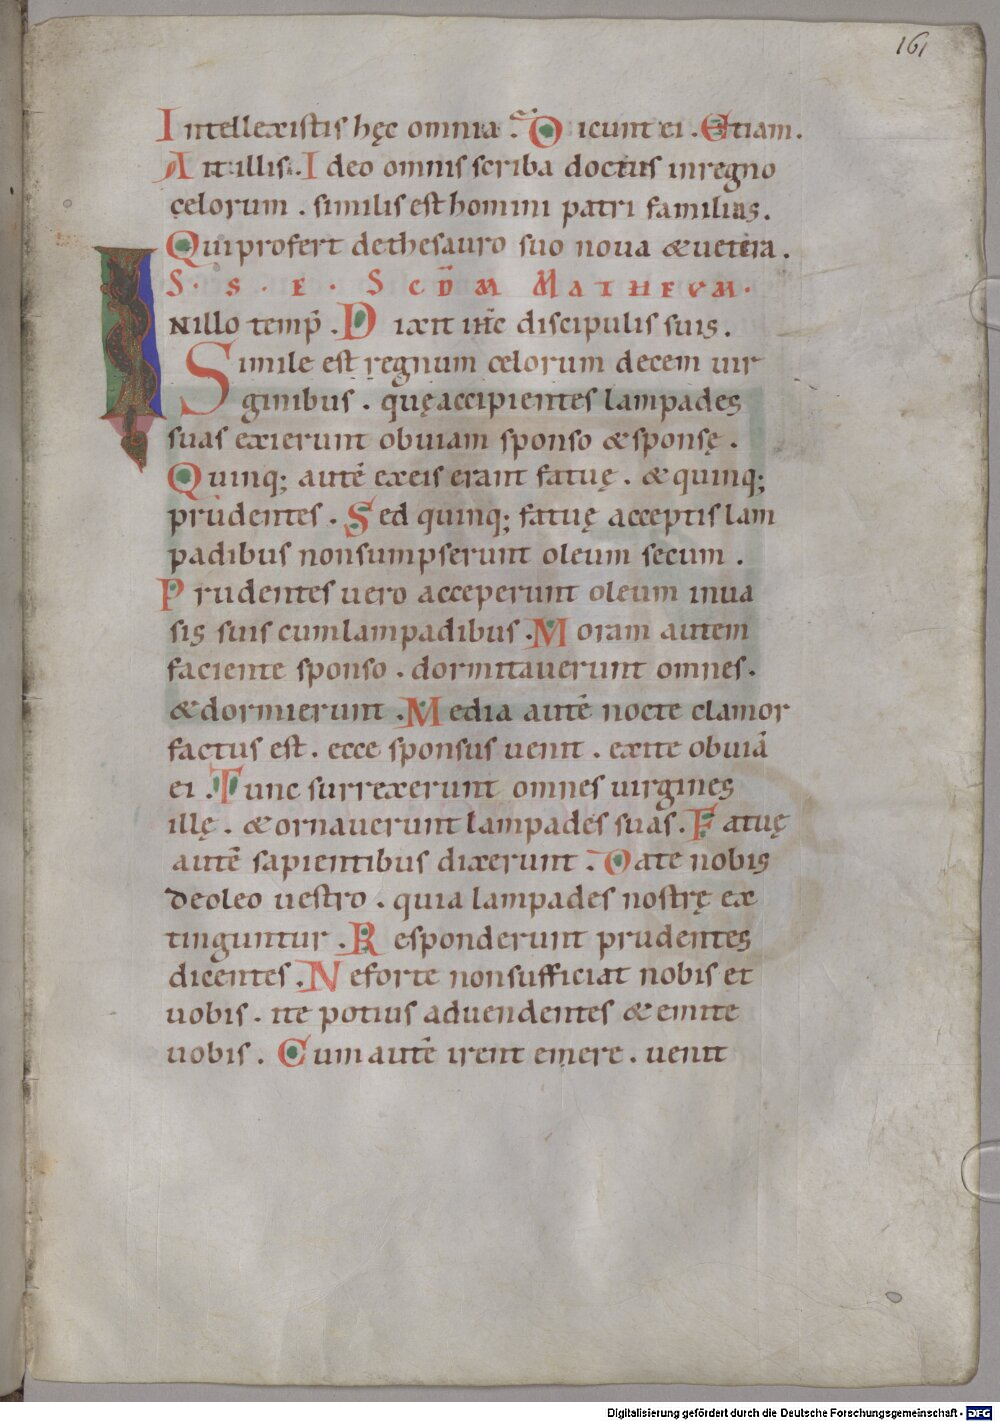 161
Intellexistis hęc omnia? Dicunt ei. Etiam.
Ait illis. Ideo omnis scriba doctus in regno
celorum. similis est homini patri familias.
Qui profert de thesauro suo noua & uetera.
S. S. E. SCDM MATHEVM.
INillo temp̄. Dixit ih̄c discipulis suis.
Simile est regnum celorum decem uir
ginibus. quę accipientes lampades
suas exierunt obuiam sponso & sponsę.
Quinq; autē ex eis erant fatuę. & quinq;
prudentes. Sed quinq; fatuę acceptis lam
padibus non sumpserunt oleum secum.
Prudentes uero acceperunt oleum in ua
sis suis cum lampadibus. Moram autem
faciente sponso. dormitauerunt omnes.
& dormierunt. Media autē nocte clamor
factus est. ecce sponsus uenit. exite obuiā
ei. Tunc surrexerunt omnes uirgines
illę. & ornauerunt lampades suas. Fatuę
autē sapientibus dixerunt. Date nobis
de oleo uestro. quia lampades nostrę ex
tinguntur. Responderunt prudentes
dicentes. Ne forte non sufficiat nobis et
uobis. ite potius ad uendentes & emite
uobis. Cum autē irent emere. uenit
Digitalisierung gefördert durch die Deutsche Forschungsgemeinschaft - DFG